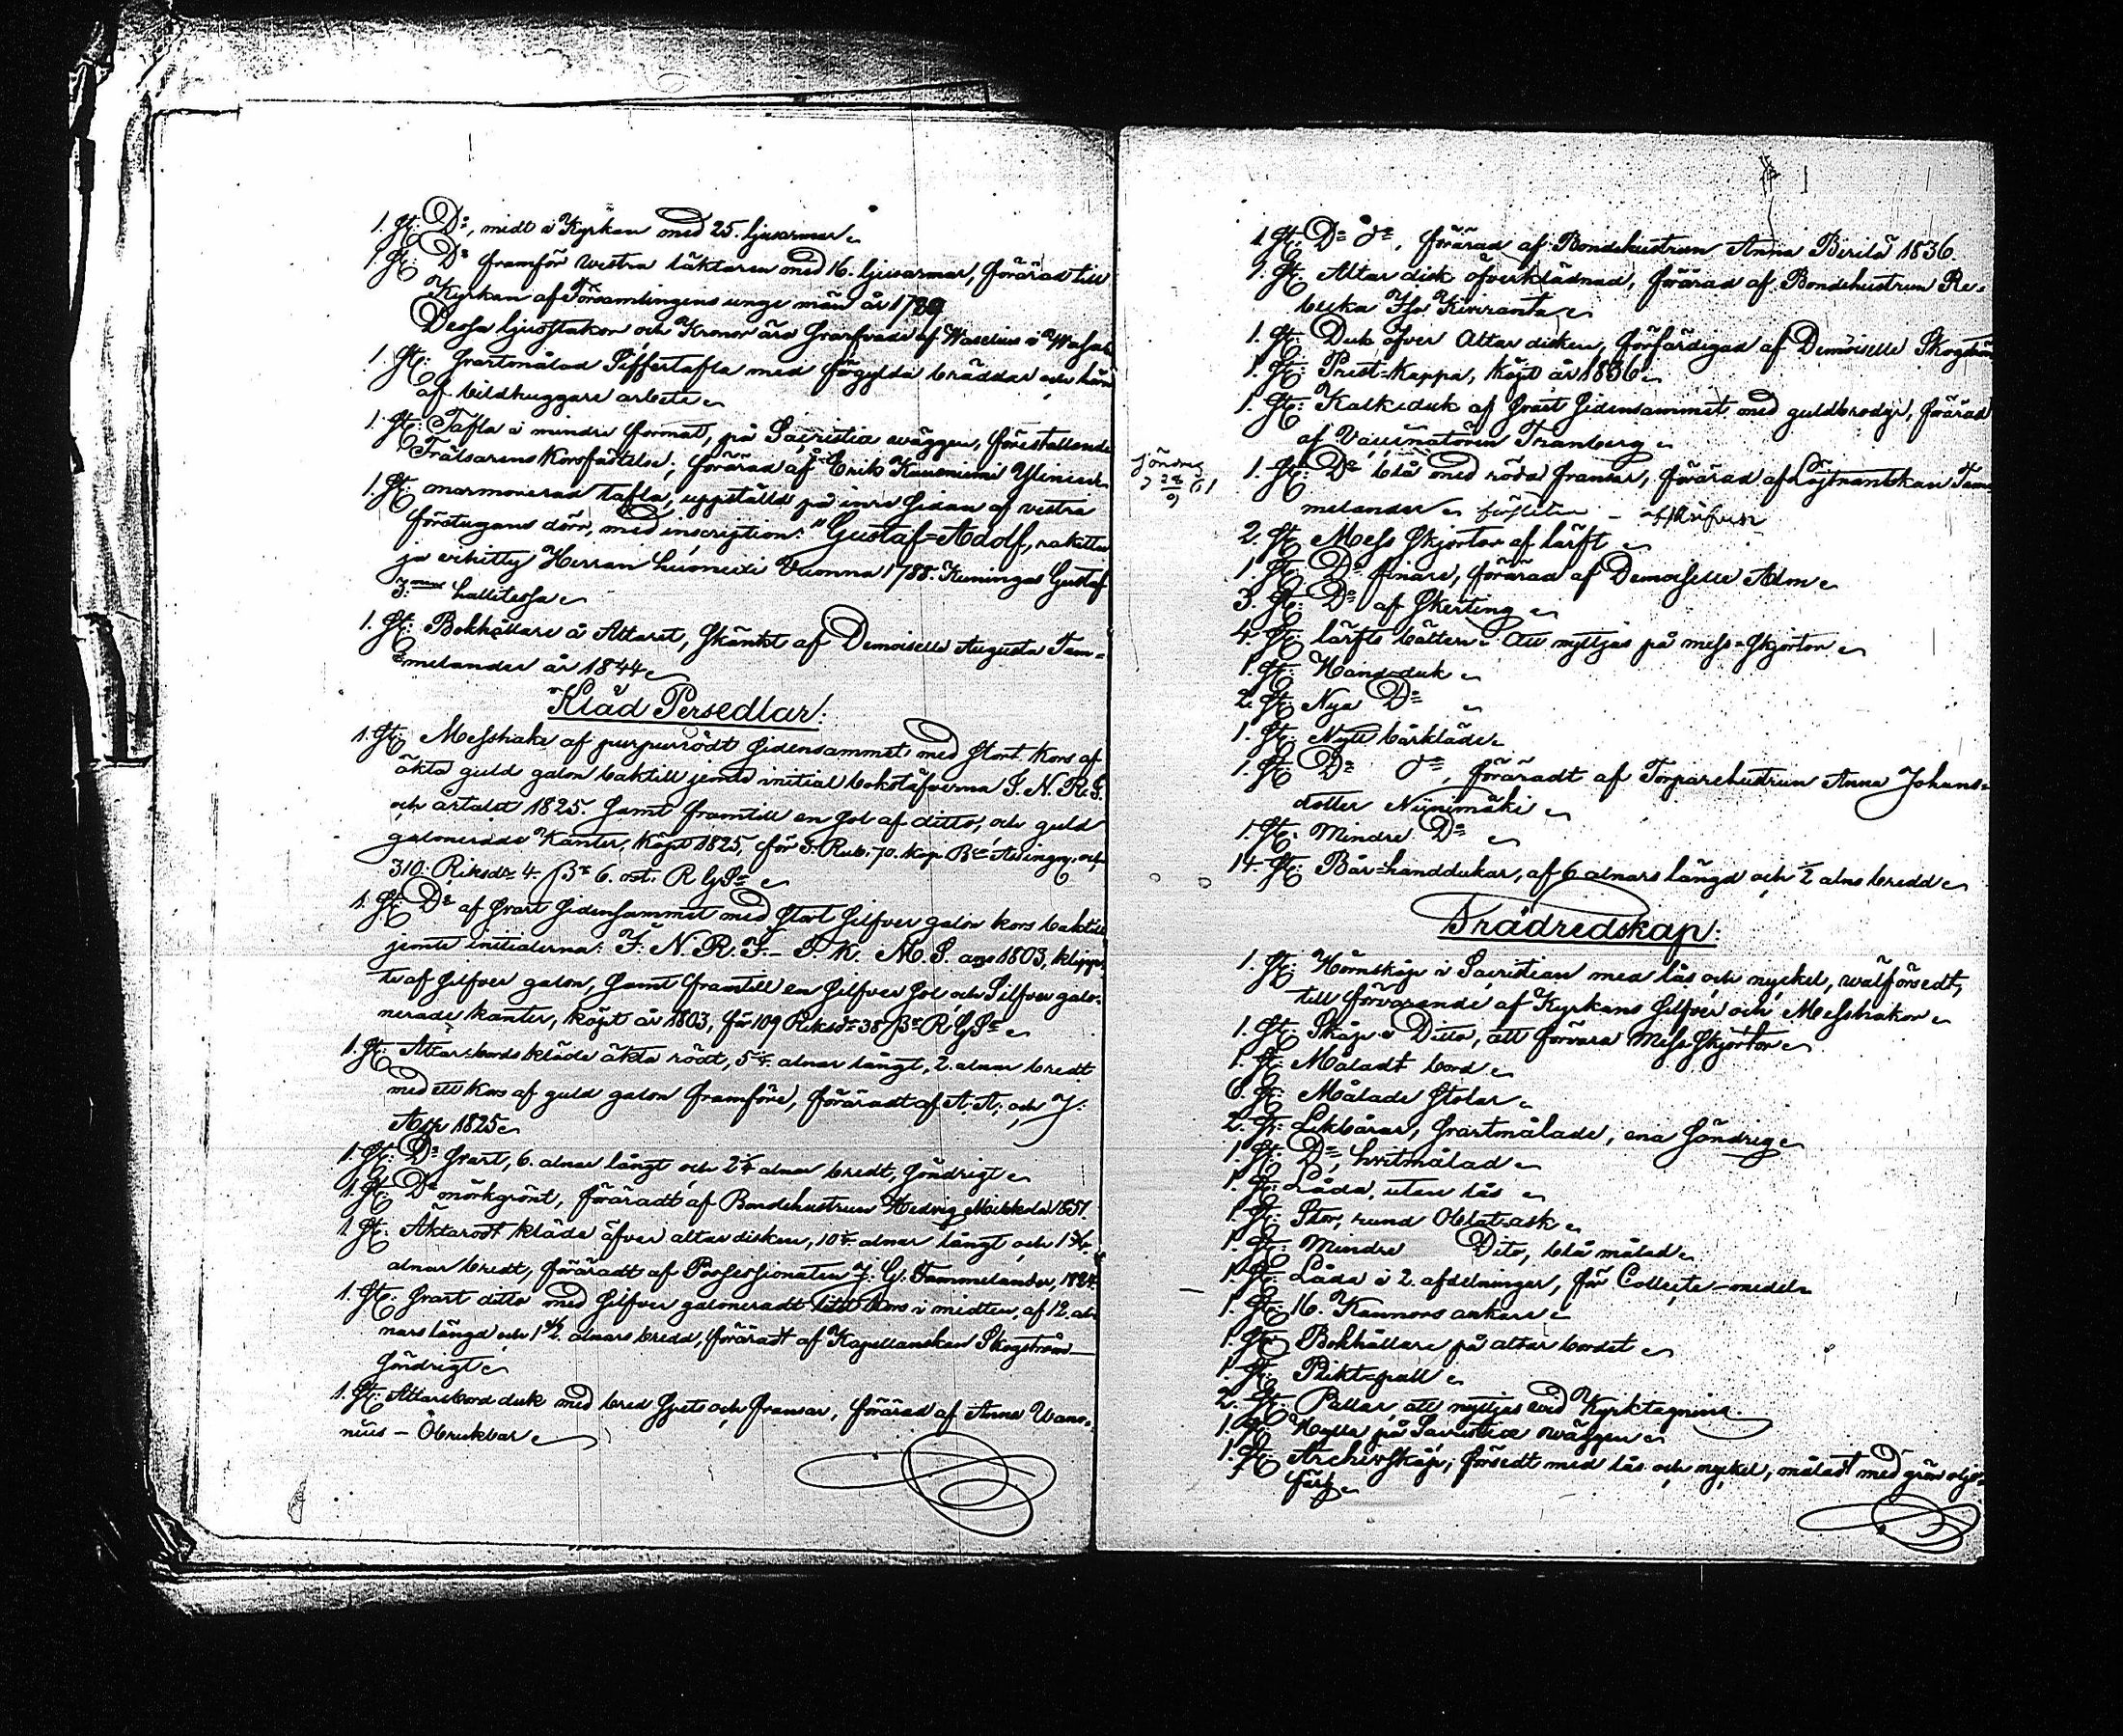 1. St: Do, midt i Kyrkan med 25. ljusarmar
1. St: Do framför westra läktaren med 16. ljusarmar, förärad till
Kyrkan af Församlingens unge män år 1789
Dessa ljusstakar och Kronor äro svarfvade af Waselius i
1. St: Svartmålad Siffertafla med förgylda bräddar och
af bildhuggare arbete
1. St: Tafla i mindre format, på Sacristiæ wäggen, föreställande
Frälsarens Korsfästelse; förärad af Erik Kauniemi
1. St: marmorerad tafla, uppställd på inre sidan af vestra
förstugans dörr, med inscription: "Gustaf-Adolf, rakettu
ja vihitty Herran huoneixi Vuonna 1788. Kuningas Gustaf
3:men hallitessa
1. St: Bokhållare å Altaret, skänkt af Demoiselle Augusta Tam=
melander år 1844
Kläd Persedlar:
1. St: Messhake af purpurrödt sidensammet med stort kors af
äkta guld galon baktill jemte initial bokstäfverna I. N. R. I.
och årtalet 1825. samt framtill en sol af ditto, och guld
galonerade Kanter, köpt 1825, för 5. Rub. 70. kop. och
310. Riksdr 4. 6. rst. R G S
1. St: Do af svart sidensammet med stort silfver galon kors baktill
jemte initialerna: I. N. R. I. – I. K. M. S. ano 1803, klipp=
te af silfver galon, samt framtill en silfver sol, och Silfver galo=
nerade kanter, köpt år 1803, för 109 Riksdr 38 R G S
1. St: Altarbords kläde äkta rödt, 5 1/4 alnar långt, 2. alnar bredt
med ett kors af guld galon framföre, föräradt af A. A. och J.
Asp 1825
1. St: Do svart, 6. alnar långt och 2 1/4 alnar bredt, söndrigt
1. St: Do mörkgrönt, föräradt af Bondehustrun Hedvig Mickels 1851.
1. St: Äktarödt kläde öfver altar disken, 10 1/2 alnar långt och 1
alnar bredt, föräradt af Possessionaten J. G. Tammelander, 1824.
1. St: svart ditto med silfver galoneradt litet kors i midten, af 12. al=
nars längd och 1 alnars bredd, föräradt af Kapellanskan Skogström –
söndrigt
1. St: Altarebord duk med bred spets och fransar, förärad af Anna Wano=
nius – Obrukbar
1. St: Do do, förärad af Bondehustrun Anna Berila 1836.
1. St: Altar disk öfverklädnad, förärad af Bondehustrun Re=
becka Iso Kiviranta
1. St: Duk öfver Altar disken, förfärdigad af Demoiselle Skogström
1. St: Prest-Kappa, köpt år 1836
1. St: Kalk-duk af svart sidensammet med guldbrodyr, förärad
af Vaccinatören Tranberg
söndrig
28/9 61
1. St: Do blå med röda fransar, förärad af Löjtnantskan Tam=
melander
2. St: Mess skjortor af lärft
1. St: Do finare, förärad af Demoiselle Alm
3. St: Do af Skerting
4. St: lärfts bälten att nyttjas på mess-skjortor
1. St: Handduk
2. St: Nya Do
1. St: Nytt bårkläde
1. St: Do do, föräradt af Torparehustrun Anna Johans=
dotter Niinimäki
1. St: Mindre Do
14. St: Bår-handdukar, af 6 alnars längd och 1/2 alns bredd
Trädredskap:
1. St: Hörnskåp i Sacristian med lås och nyckel, wälförsedt,
till förvarande af Kyrkans silfver och Messhakor
1. St: Skåp i Ditto, att förvara Mess-skjortor
1. St: Måladt bord
6. St: Målade stolar
2. St: Likbårar, svartmålade, ena söndrig
1. St: Do, hvitmålad
1. St: Låda, utan lås
1. St: Stor, rund Oblat-ask
1. St: Mindre Dito, blå målad
1. St: Låda i 2. afdelningar, för Collecte-medel
1. St: 16. Kannors ankare
1. St: Bokhållare på altar bordet
1. St: Pliktpall
2. St: Pallar, att nyttjas vid Kyrktagning.
1. St: Hylla på Sacristiæ wäggen
1. St: Archivskåp, försedt med lås och nyckel, måladt med grön olje=
färg